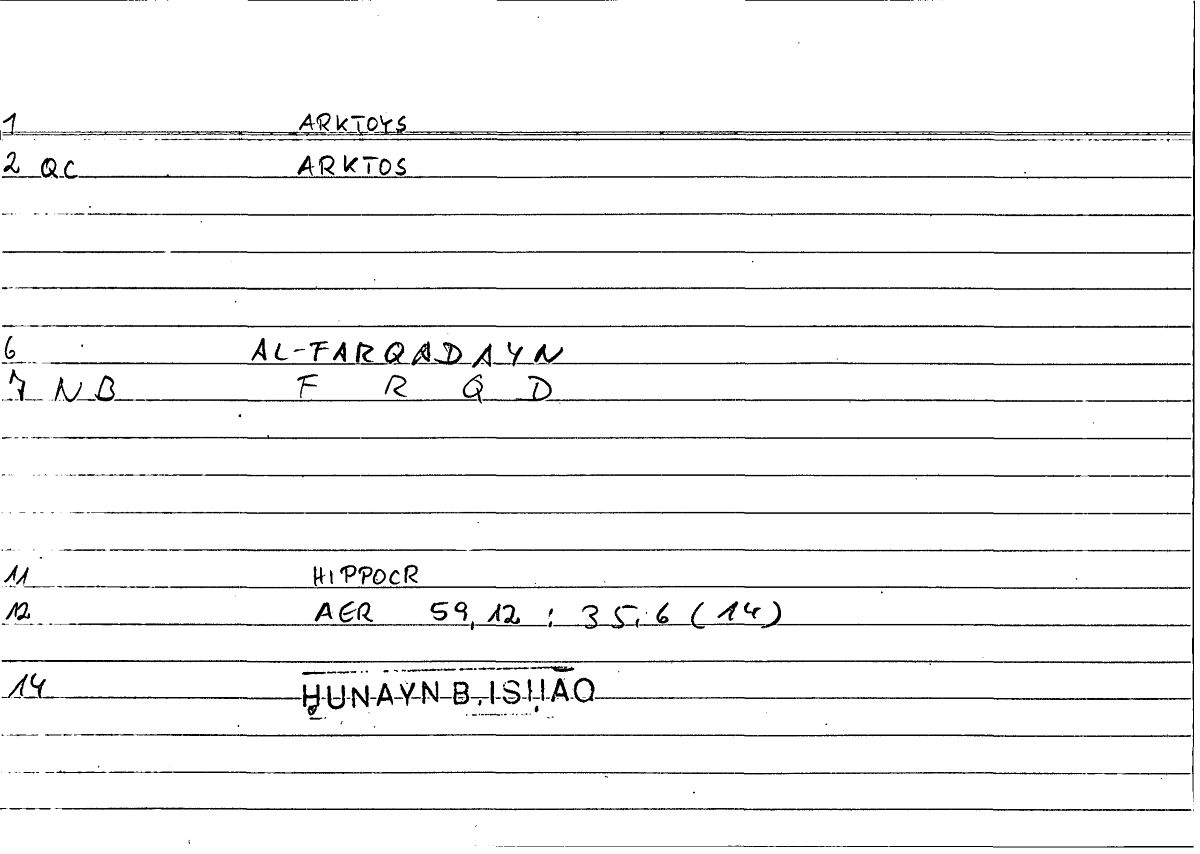 1 ARKTOYS
2 QC ARKTOS
6 AL-FARQADAYN
7 NB F R Q D
11 HIPPOCR
12 AER 59,12 : 35.6 (14)
14 ḤUNAYN B. ISḤĀQ